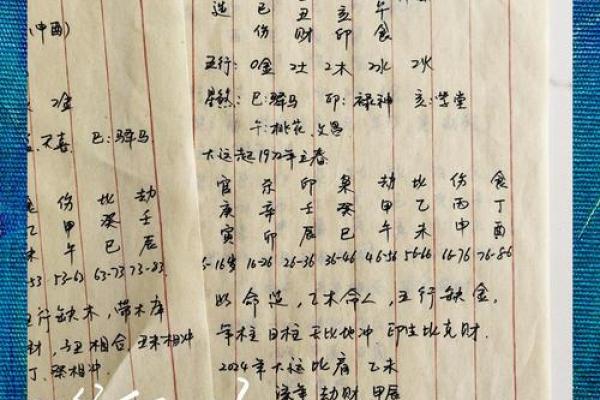 (申酉)
2金
天喜 巳:驿马
伤 比 劫
乙 甲 癸 壬
未 午 巳 辰
53 53-63 63-73 73-83
五行缺木，带木库
财，丑相合，丑未相冲
丁癸相冲.
造 巳 丑 亥 午
伤 财 印 食
五行: 0金 2土 2木 2水 2火
星煞: 巳:驿马 卯:禄神 亥:学堂
午:桃花、文昌
大运起1972年立春
官 杀 印 枭 劫 比 伤 食
庚 辛 壬 癸 甲 乙 丙 丁
寅 卯 辰 巳 午 未 申 酉
6-16岁 16-26 26-36 36-46 46-56 56-66 66-76 76-86
此命造，乙木命人，五行缺金，
年柱日柱天比地冲 印生比克财.
2024年大运比肩 乙未
流年 劫财 甲辰